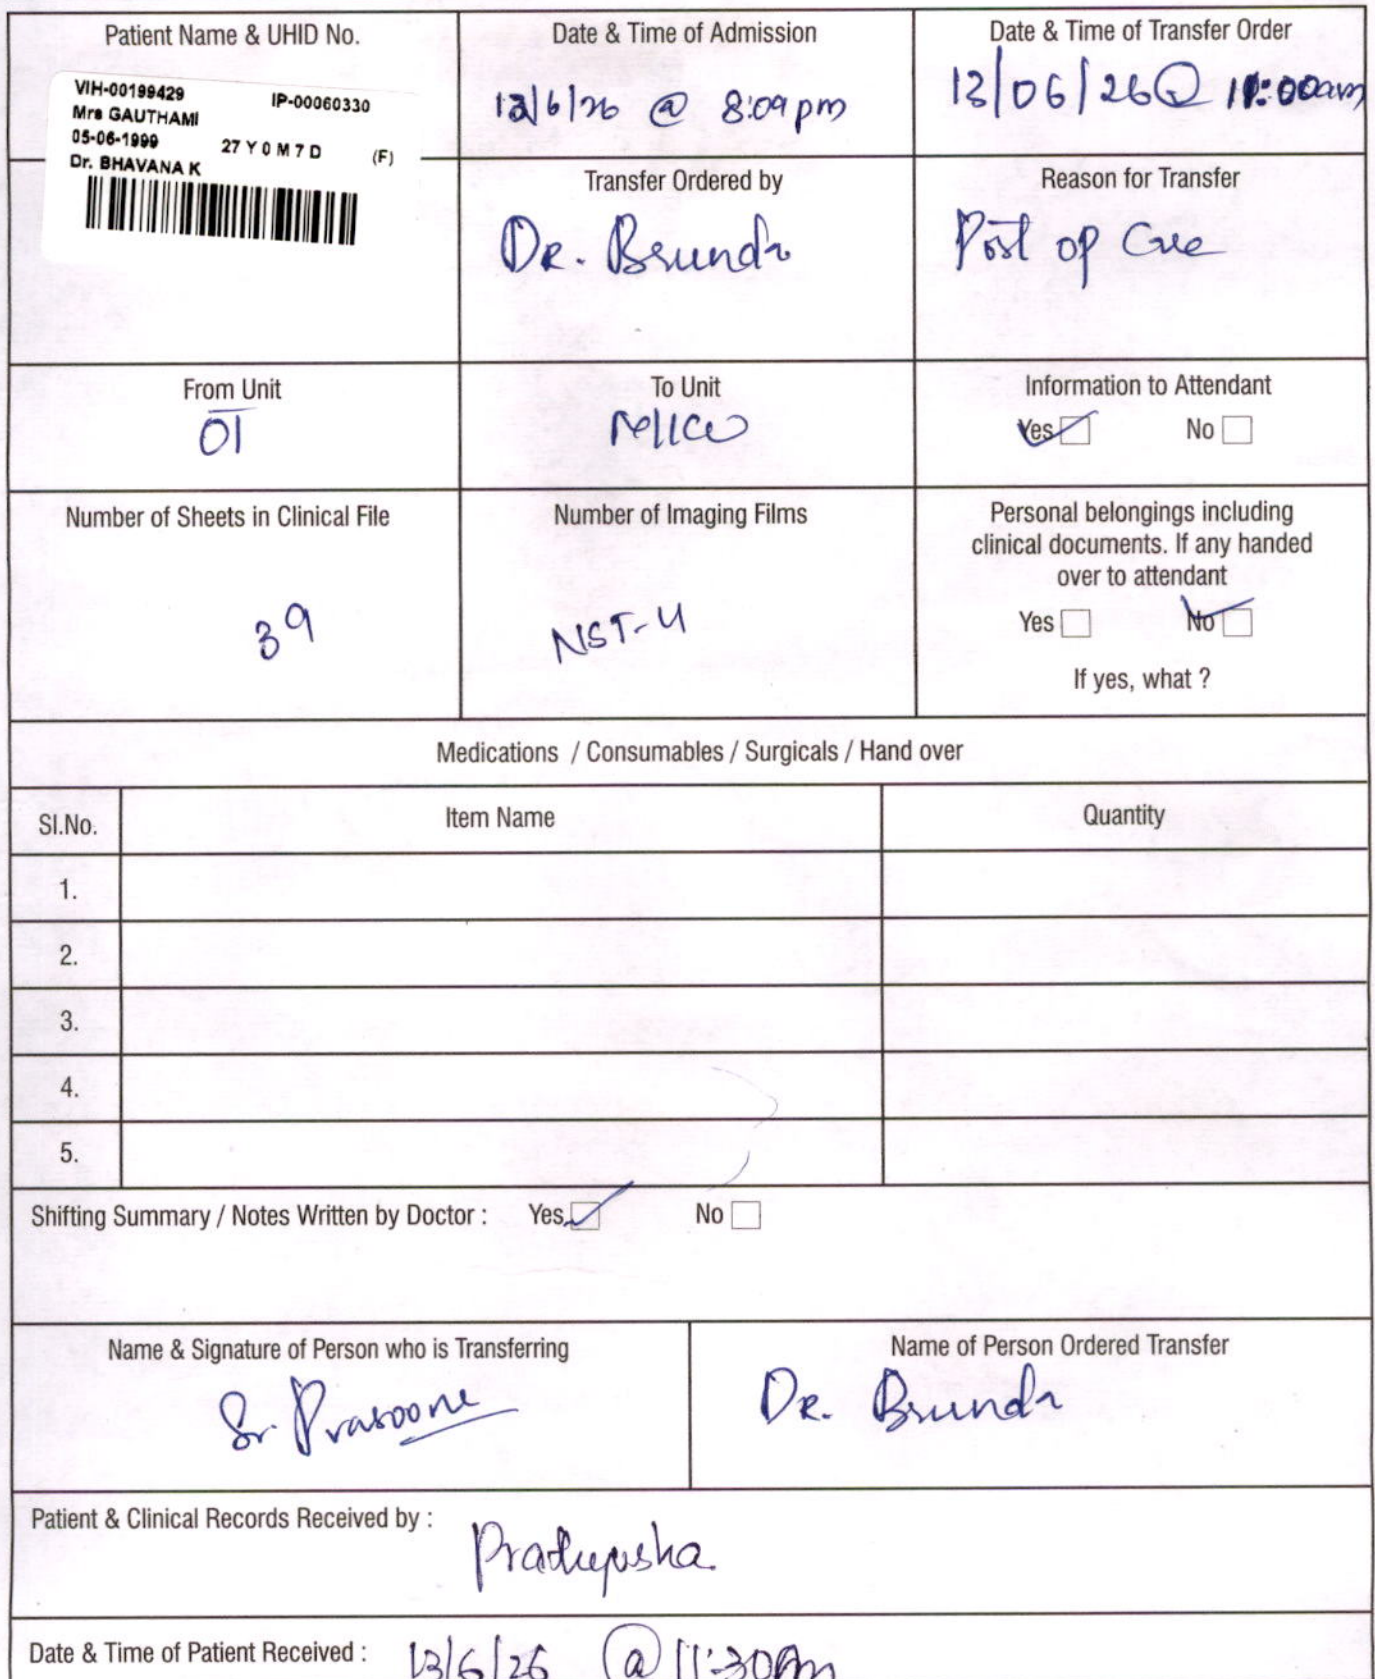 Patient Name & UHID No.
VIH-00199429 IP-00060330
Mrs GAUTHAMI
05-06-1999 27 Y 0 M 7 D (F)
Dr. BHAVANA K
Date & Time of Admission
12/6/26 @ 8:09pm
Date & Time of Transfer Order
13/06/26 @ 11:00am
Transfer Ordered by
Dr. Brunda
Reason for Transfer
Post op Care
From Unit
OT
To Unit
Information to Attendant
Yes No
Number of Sheets in Clinical File
39
Number of Imaging Films
NST-4
Personal belongings including
clinical documents. If any handed
over to attendant
Yes No
If yes, what ?
Medications / Consumables / Surgicals / Hand over
Sl.No. Item Name Quantity
1.
2.
3.
4.
5.
Shifting Summary / Notes Written by Doctor : Yes No
Name & Signature of Person who is Transferring
Sr. Prasoone
Name of Person Ordered Transfer
Dr. Brunda
Patient & Clinical Records Received by : Pratyusha
Date & Time of Patient Received : 13/6/26 @ 11:30Am